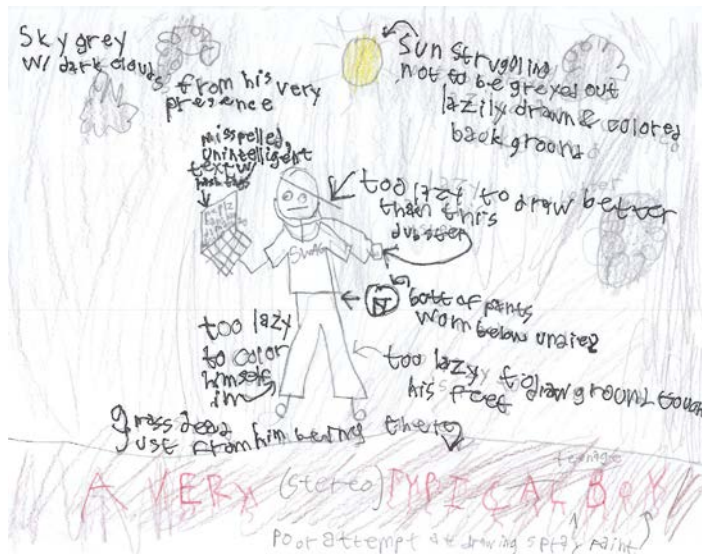 Sky grey
w/ dark clouds
from his very
presence
Sun struggling
not to be greyed out
lazily drawn & colored
background
misspelled,
unintelligent
text w/
hashtags
too lazy to draw better
than this
Swag
butt of pants
worn below undiez
too lazy
to color
himself
in
too lazy to draw ground touch
his feet
grass dead
just from him being there
teenage
A VERY (stereo)TYPICAL BOY
poor attempt at drawing spray paint